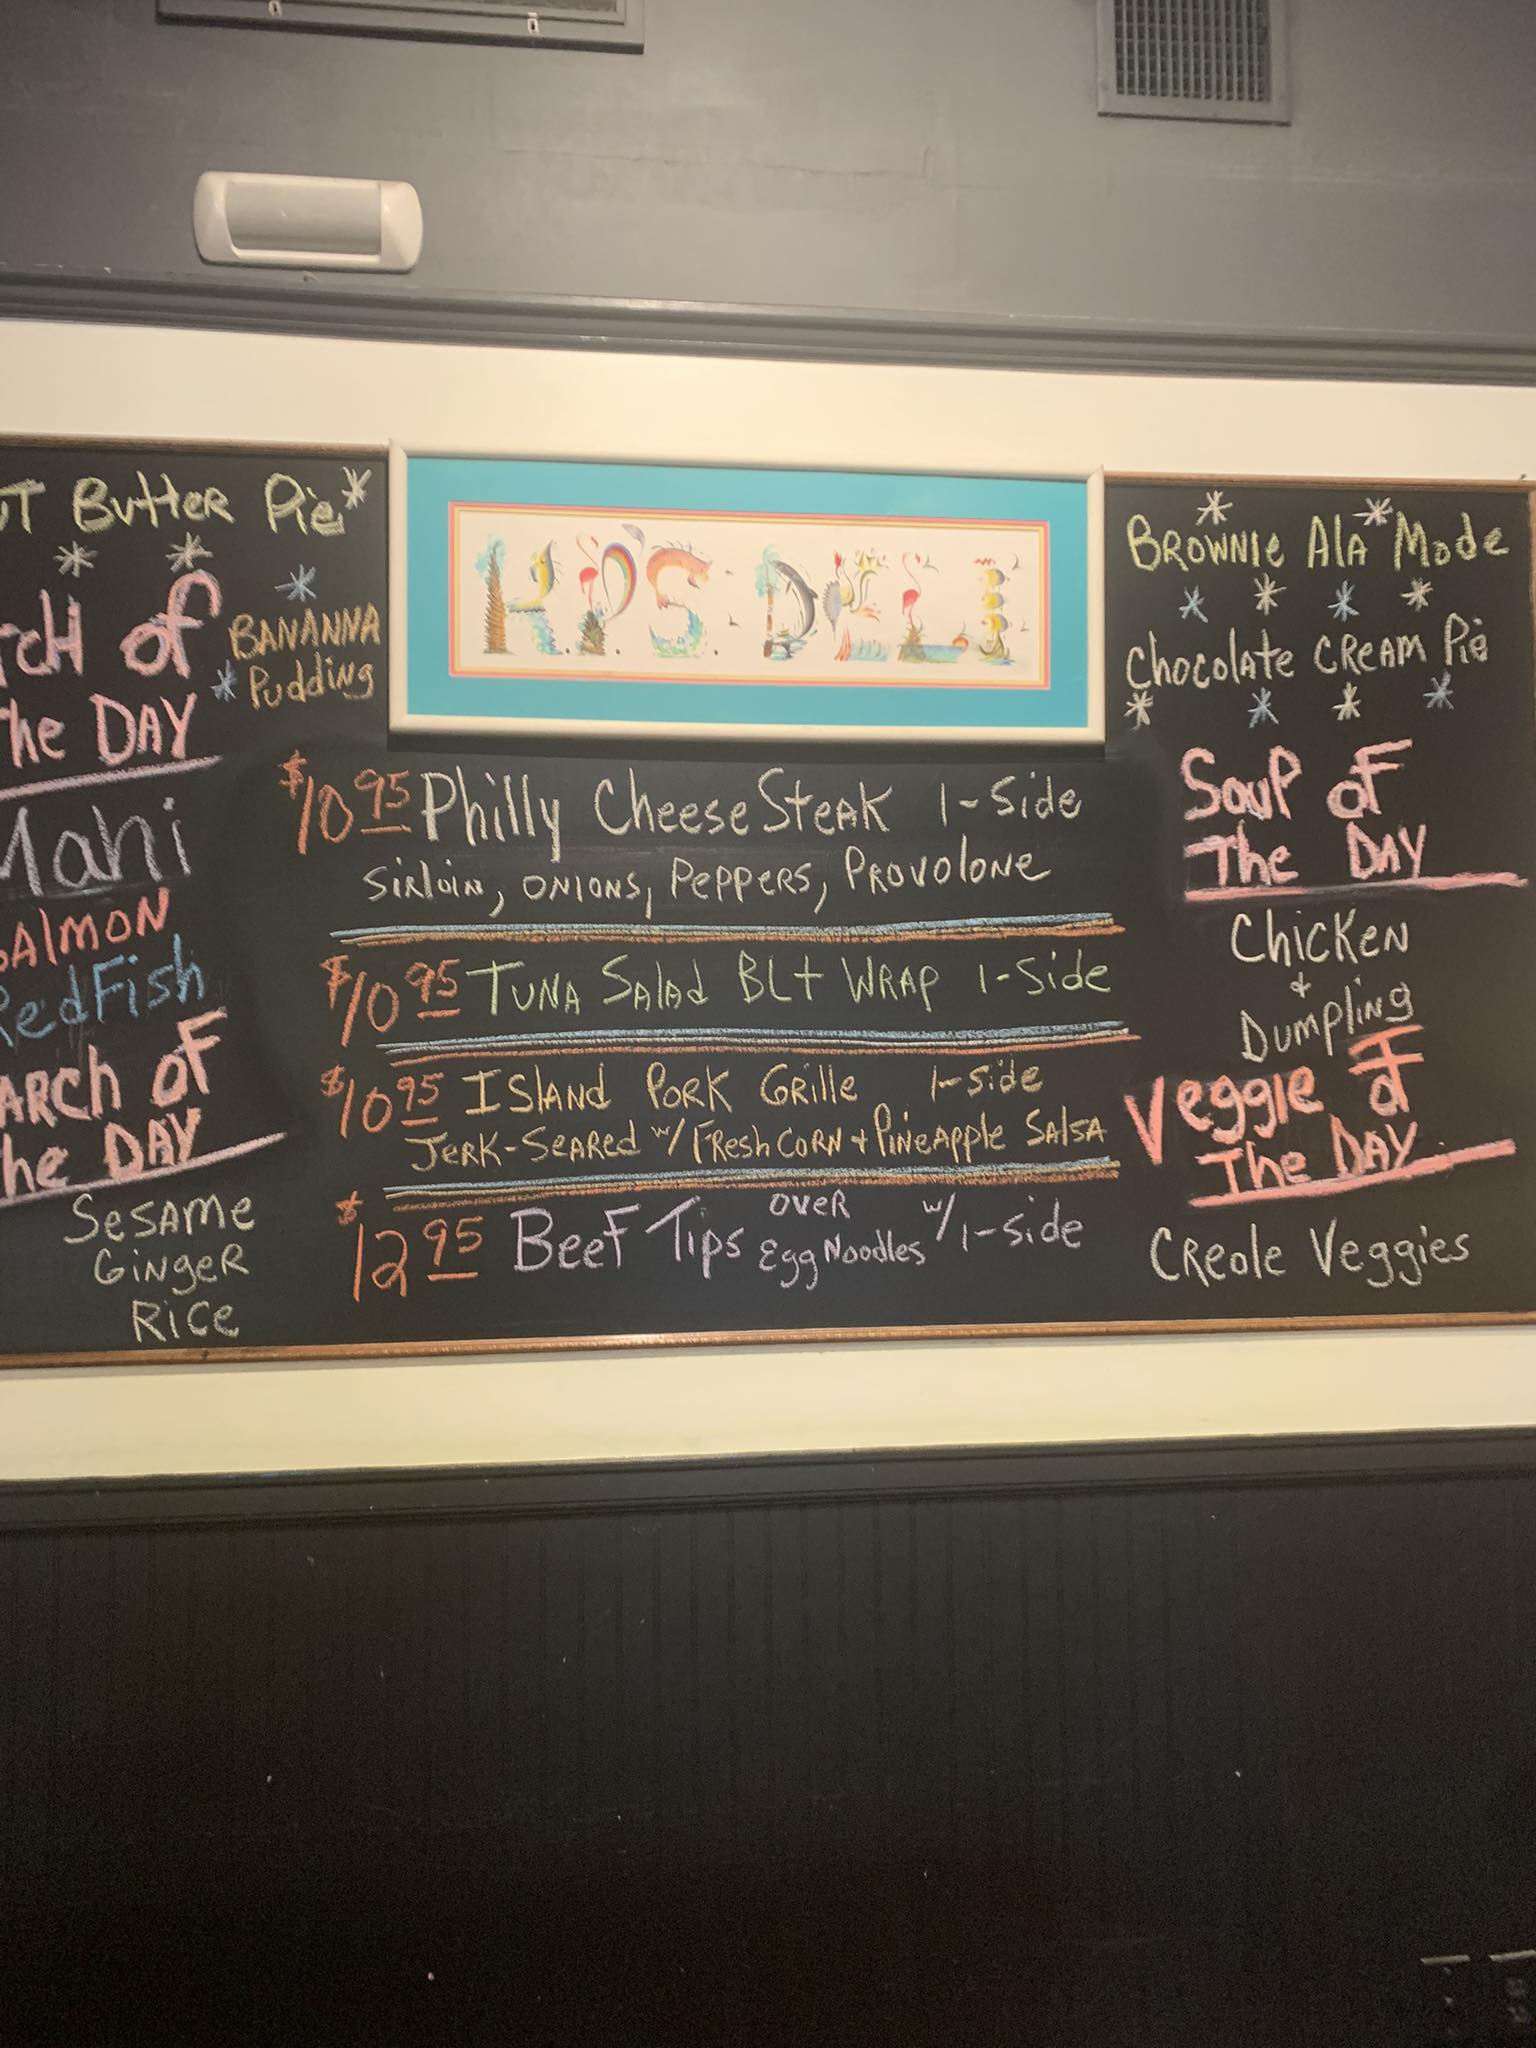 Butter Pie
BANANNA
Pudding
of
DAY
Mahi
SALMON
RedFish
of
DAY
SESAME
GINGER
RICE
K.P.S. DELI
$10 95 Philly Cheese STEAK 1-Side
Sirloin, ONIONS, PEPPERS, PROVOLONE
$10 95 TUNA SALAD BLT WRAP 1-Side
$10 95 ISLAND PORK GRILLE 1-Side
JERK-SEARED W/ FRESH CORN + PINEAPPLE SALSA
$12 95 Beef Tips OVER Egg Noodles W/ 1-side
BROWNIE AlA Mode
Chocolate CREAM Pie
Soup of
The DAY
Chicken
+
Dumpling
Veggie of
The DAY
CREOLE Veggies